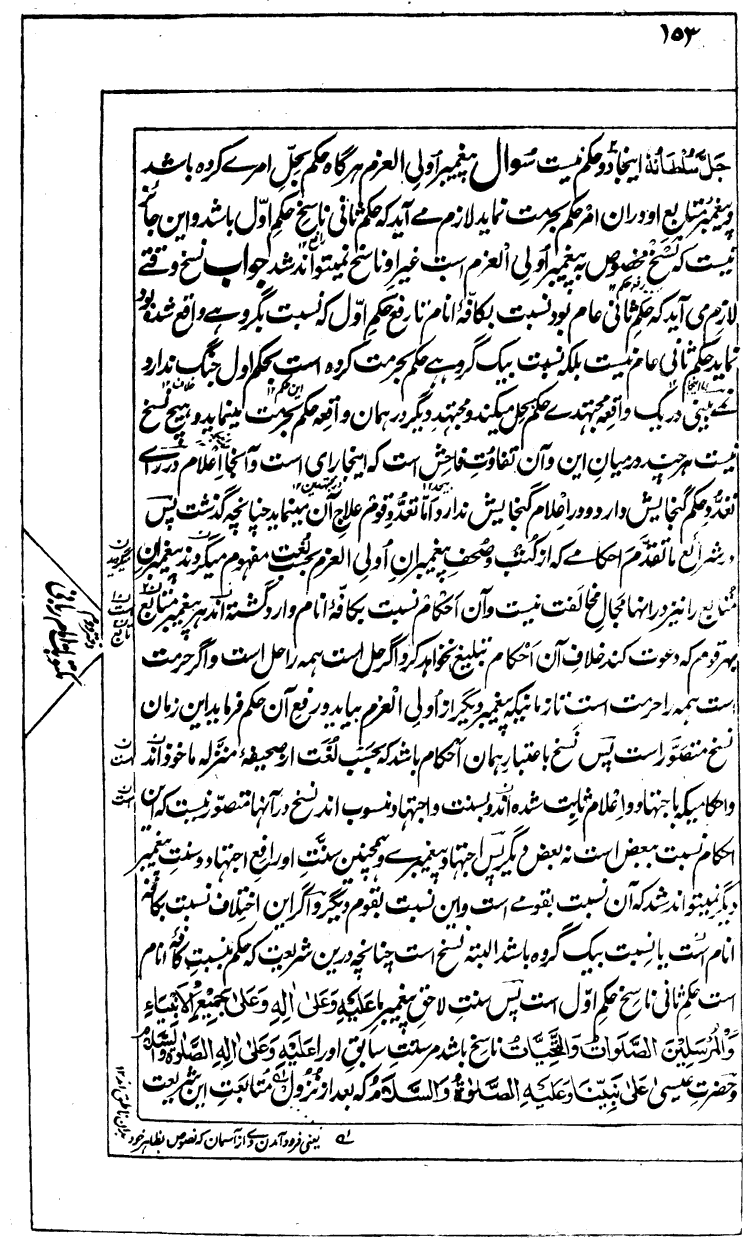 ۱۵۳
جَلَّ سُلْطَانُهٗ اینجا دو حکم نیست سُوال پیغمبر اُولی العزم هرگاه حکم بحلِّ امرے کرده باشد
و پیغمبر متابع او دران امر حکم بحرمت نماید لازم مے آید که حکم ثانی ناسخ حکم اوّل باشد و این جائز
نیست که نسخ مخصوص به پیغمبر اُولی العزم است غیر او ناسخ نمیتواند شد جواب نسخ وقتے
لازم می آید که حکم ثانی عام بود نسبت بکافّۀ انام تا رفع حکم اوّل که نسبت بگروهے واقع شده بود
نماید حکم ثانی عام نیست بلکه نسبت بیک گروهے حکم بحرمت کرده است بحکم اول جنگ ندارد
نمے بینی در یک واقعه مجتهدے حکم بحل میکند و مجتهد دیگر در همان واقعه حکم بحرمت مینماید و هیچ نسخ
نیست هر چند درمیان این و آن تفاوت فاحش است که اینجا رای است و آنجا اعلام در رای
تعدّد حکم گنجایش دارد و در اعلام گنجایش ندارد امّا تعدّد قوم علاج آن مینماید چنانچه گذشت پس
در شرائع ما تقدّم احکامے که از کتب و صحف پیغمبران اُولی العزم بحسب لغت مفهوم میگردند پیغمبران
متابع را نیز در انها مجال مخالفت نیست و آن احکام نسبت بکافّۀ انام وارد گشته اند هر پیغمبر متابع
بهر قوم که دعوت کند خلاف آن احکام تبلیغ نخواهد کرد اگر حل است همه را حل است و اگر حرمت
است همه را حرمت است تا زمانیکه پیغمبر دیگر از اُولی العزم بیاید و رفع آن حکم فرماید این زمان
نسخ متصوّر است پس نسخ باعتبار همان احکام باشد که بحسب لُغت از صحیفۀ منزله ماخوذ اند
و احکامیکه باجتهاد و اعلام ثابت شده اند و بسنت و اجتهاد منسوب اند نسخ در آنها متصوّر نیست که این
احکام نسبت ببعض است نه بعض دیگر پس اجتهاد پیغمبرے و همچنین سنّت او رافع اجتهاد و سنت پیغمبر
دیگر نمیتواند شد که آن نسبت بقومے است و این نسبت بقوم دیگر و اگر این اختلاف نسبت بکافّۀ
انام است یا نسبت بیک گروه باشد البته نسخ است چنانچه درین شریعت که حکم نسبت بکافّۀ انام
است حکم ثانی ناسخ حکم اوّل است پس سنت لاحق پیغمبر ما عَلَیْهِ وَعَلیٰ اٰلِهٖ وَعَلیٰ جَمِیْعِ الْاَنْبِیَاءِ
وَالْمُرْسَلِیْنَ الصَّلَوَاتُ وَالتَّحِیَّاتُ ناسخ باشد مر سنت سابق او را عَلَیْهِ وَعَلیٰ اٰلِهِ الصَّلٰوةُ وَالسَّلَامُ
و حضرت عیسیٰ عَلیٰ نَبِیِّنَا وَعَلَیْهِ الصَّلٰوةُ وَالسَّلَامُ که بعد از نزول متابعت این شریعت
یعنی فرود آمدن وے از آسمان که نصوص بظاهر خود
بران ناطق اند ۱۲
دفتر دوم
مکتوبات امام ربانی